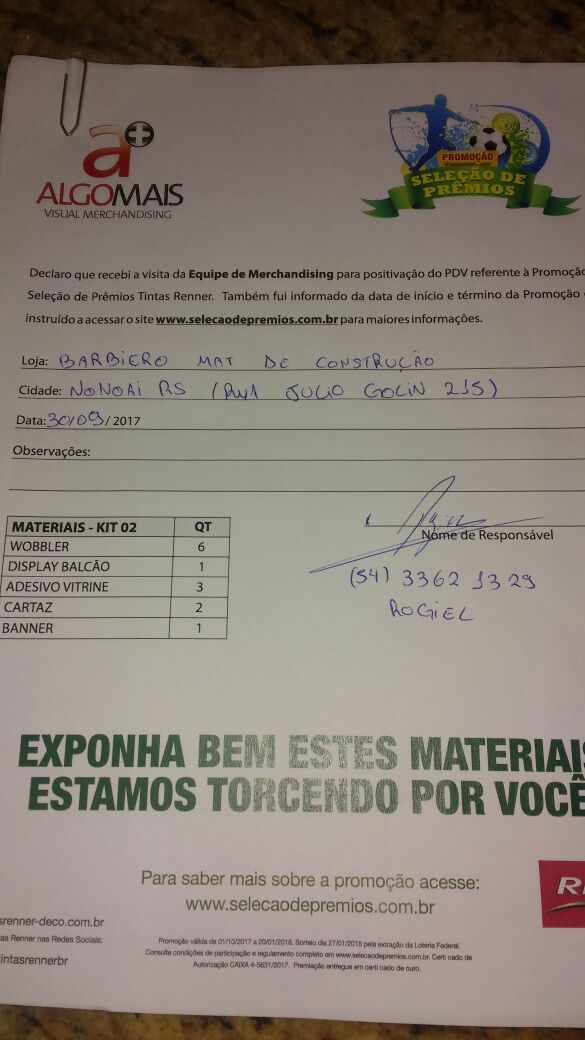 a+
ALGOMAIS
VISUAL MERCHANDISING
PROMOÇÃO
SELEÇÃO DE
PRÊMIOS
Declaro que recebi a visita da Equipe de Merchandising para positivação do PDV referente à Promoção
Seleção de Prêmios Tintas Renner. Também fui informado da data de início e término da Promoção
instruído a acessar o site www.selecaodepremios.com.br para maiores informações.
Loja: BARBIERO MAT DE CONSTRUÇÃO
Cidade: NONOAI RS (RUA JULIO GOLIN 215)
Data: 30/09/2017
Observações:
MATERIAIS - KIT 02 QT
WOBBLER 6
DISPLAY BALCÃO 1
ADESIVO VITRINE 3
CARTAZ 2
BANNER 1
Nome de Responsável
(54) 3362 1329
ROGIEL
EXPONHA BEM ESTES MATERIAIS
ESTAMOS TORCENDO POR VOCÊ
Para saber mais sobre a promoção acesse:
www.selecaodepremios.com.br
srenner-deco.com.br
tas Renner nas Redes Sociais:
intasrennerbr
Promoção válida de 01/10/2017 a 20/01/2018. Sorteio dia 27/01/2018 pela extração da Loteria Federal.
Consulte condições de participação e regulamento completo em www.selecaodepremios.com.br. Certi cado de
Autorização CAIXA 4-5631/2017. Premiação entregue em certi cado de ouro.